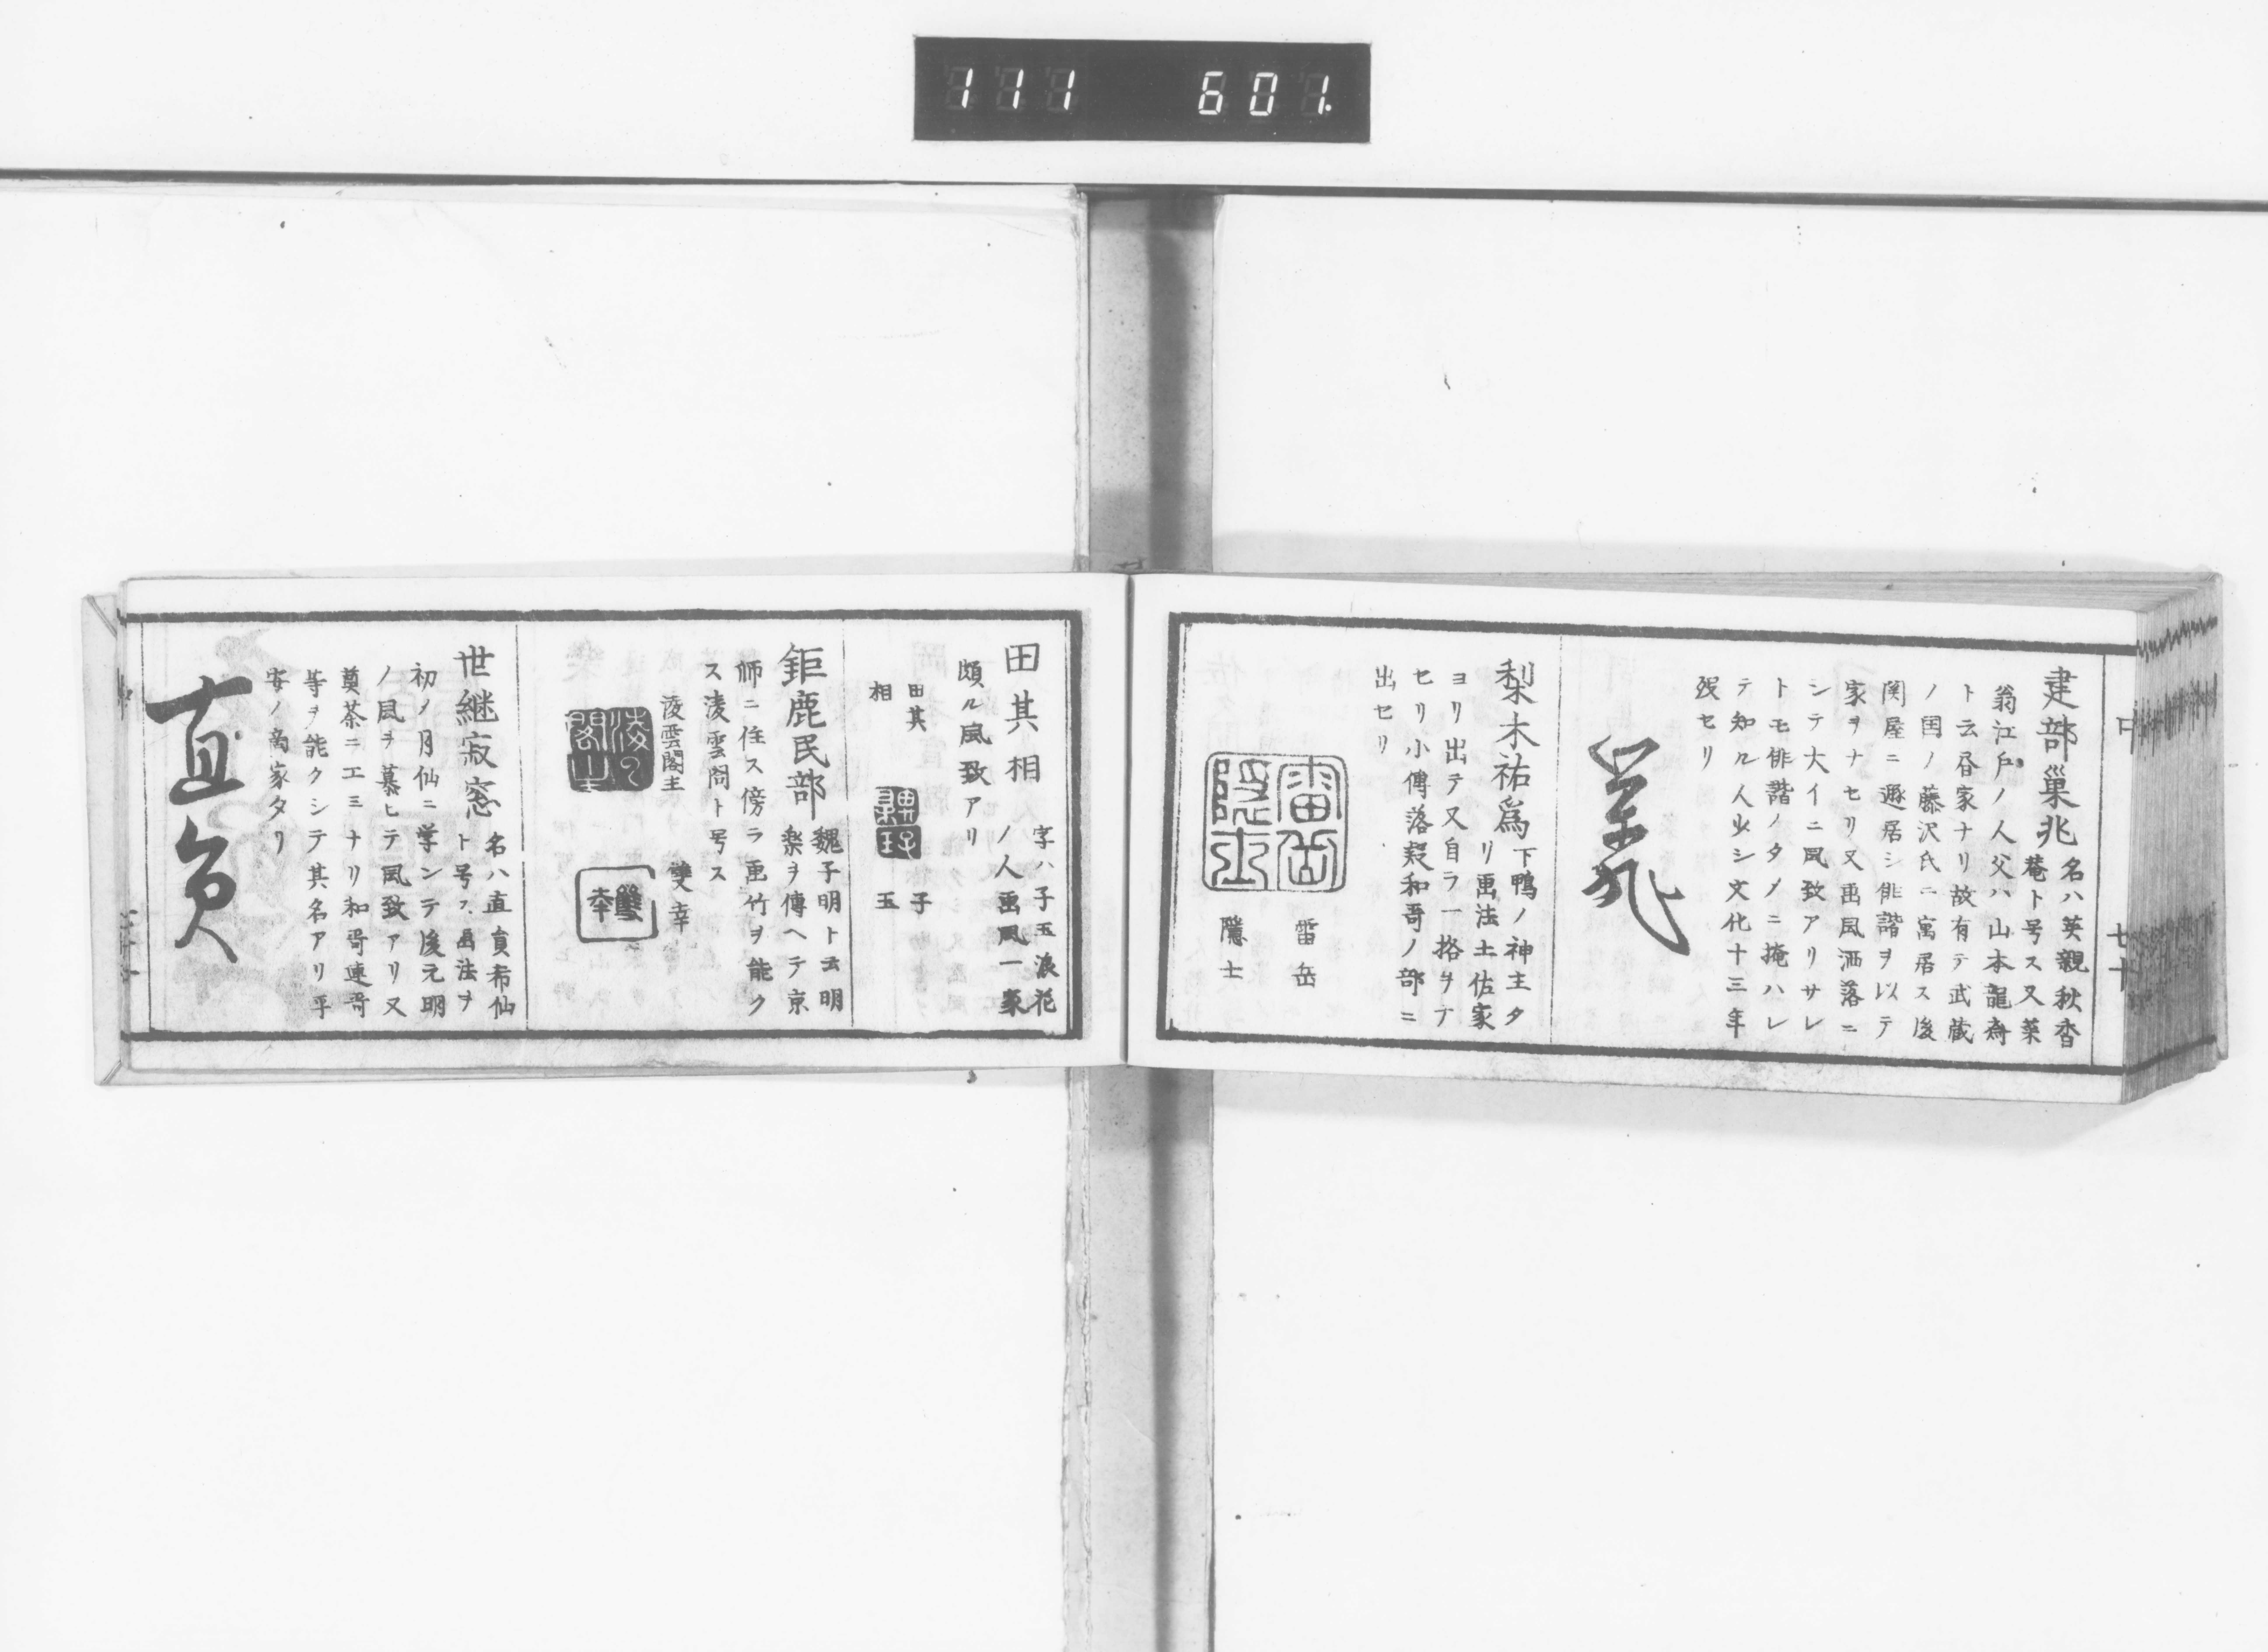 111 601.
建部巣兆 名ハ英親秋香
菴ト号ス又菜
翁江戸ノ人父ハ山本龍斎
ト云昏家ナリ故有テ武蔵
ノ国ノ藤沢氏ニ寓居ス後
関屋ニ遯居シ俳諧ヲ以テ
家ヲナセリ又画風洒落ニ
シテ大イニ風致アリサレ
トモ俳諧ノタメニ掩ハレ
テ知ル人少シ文化十三年
歿セリ
梨木祐為 下鴨ノ神主タ
リ画法土佐家
ヨリ出テ又自ラ一格ヲナ
セリ小傳落款和哥ノ部ニ
出セリ
雷岳
隠士
雷岳
隠士
七十
田其相 字ハ子玉浪花
ノ人画風一家
頗ル風致アリ
田其
相
子
玉
鉅鹿民部 魏子明ト云明
楽ヲ傳ヘテ京
師ニ住ス傍ラ画竹ヲ能ク
ス凌雲閣ト号ス
凌雲閣主
雙幸
世継寂窓 名ハ直員希仙
ト号ス画法ヲ
初メ月仙ニ学ンテ後元明
ノ風ヲ慕ヒテ風致アリ又
奠茶ニ工ミナリ和哥連哥
等ヲ能クシテ其名アリ平
安ノ商家タリ
直員